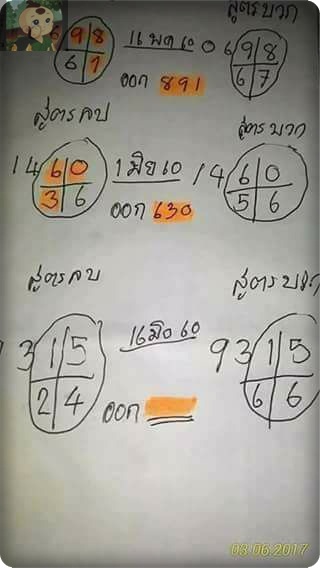 สูตรบวก
6 9 8 16 พค 60 0 6 9 8
6 1 ออก 891 6 7
สูตรลบ สูตรบวก
1 4 6 0 1 มิย 60 1 4 6 0
3 6 ออก 630 5 6
สูตรลบ สูตรบวก
3 1 5 16 มิย 60 9 3 1 5
2 4 ออก 6 6
03.06.2017